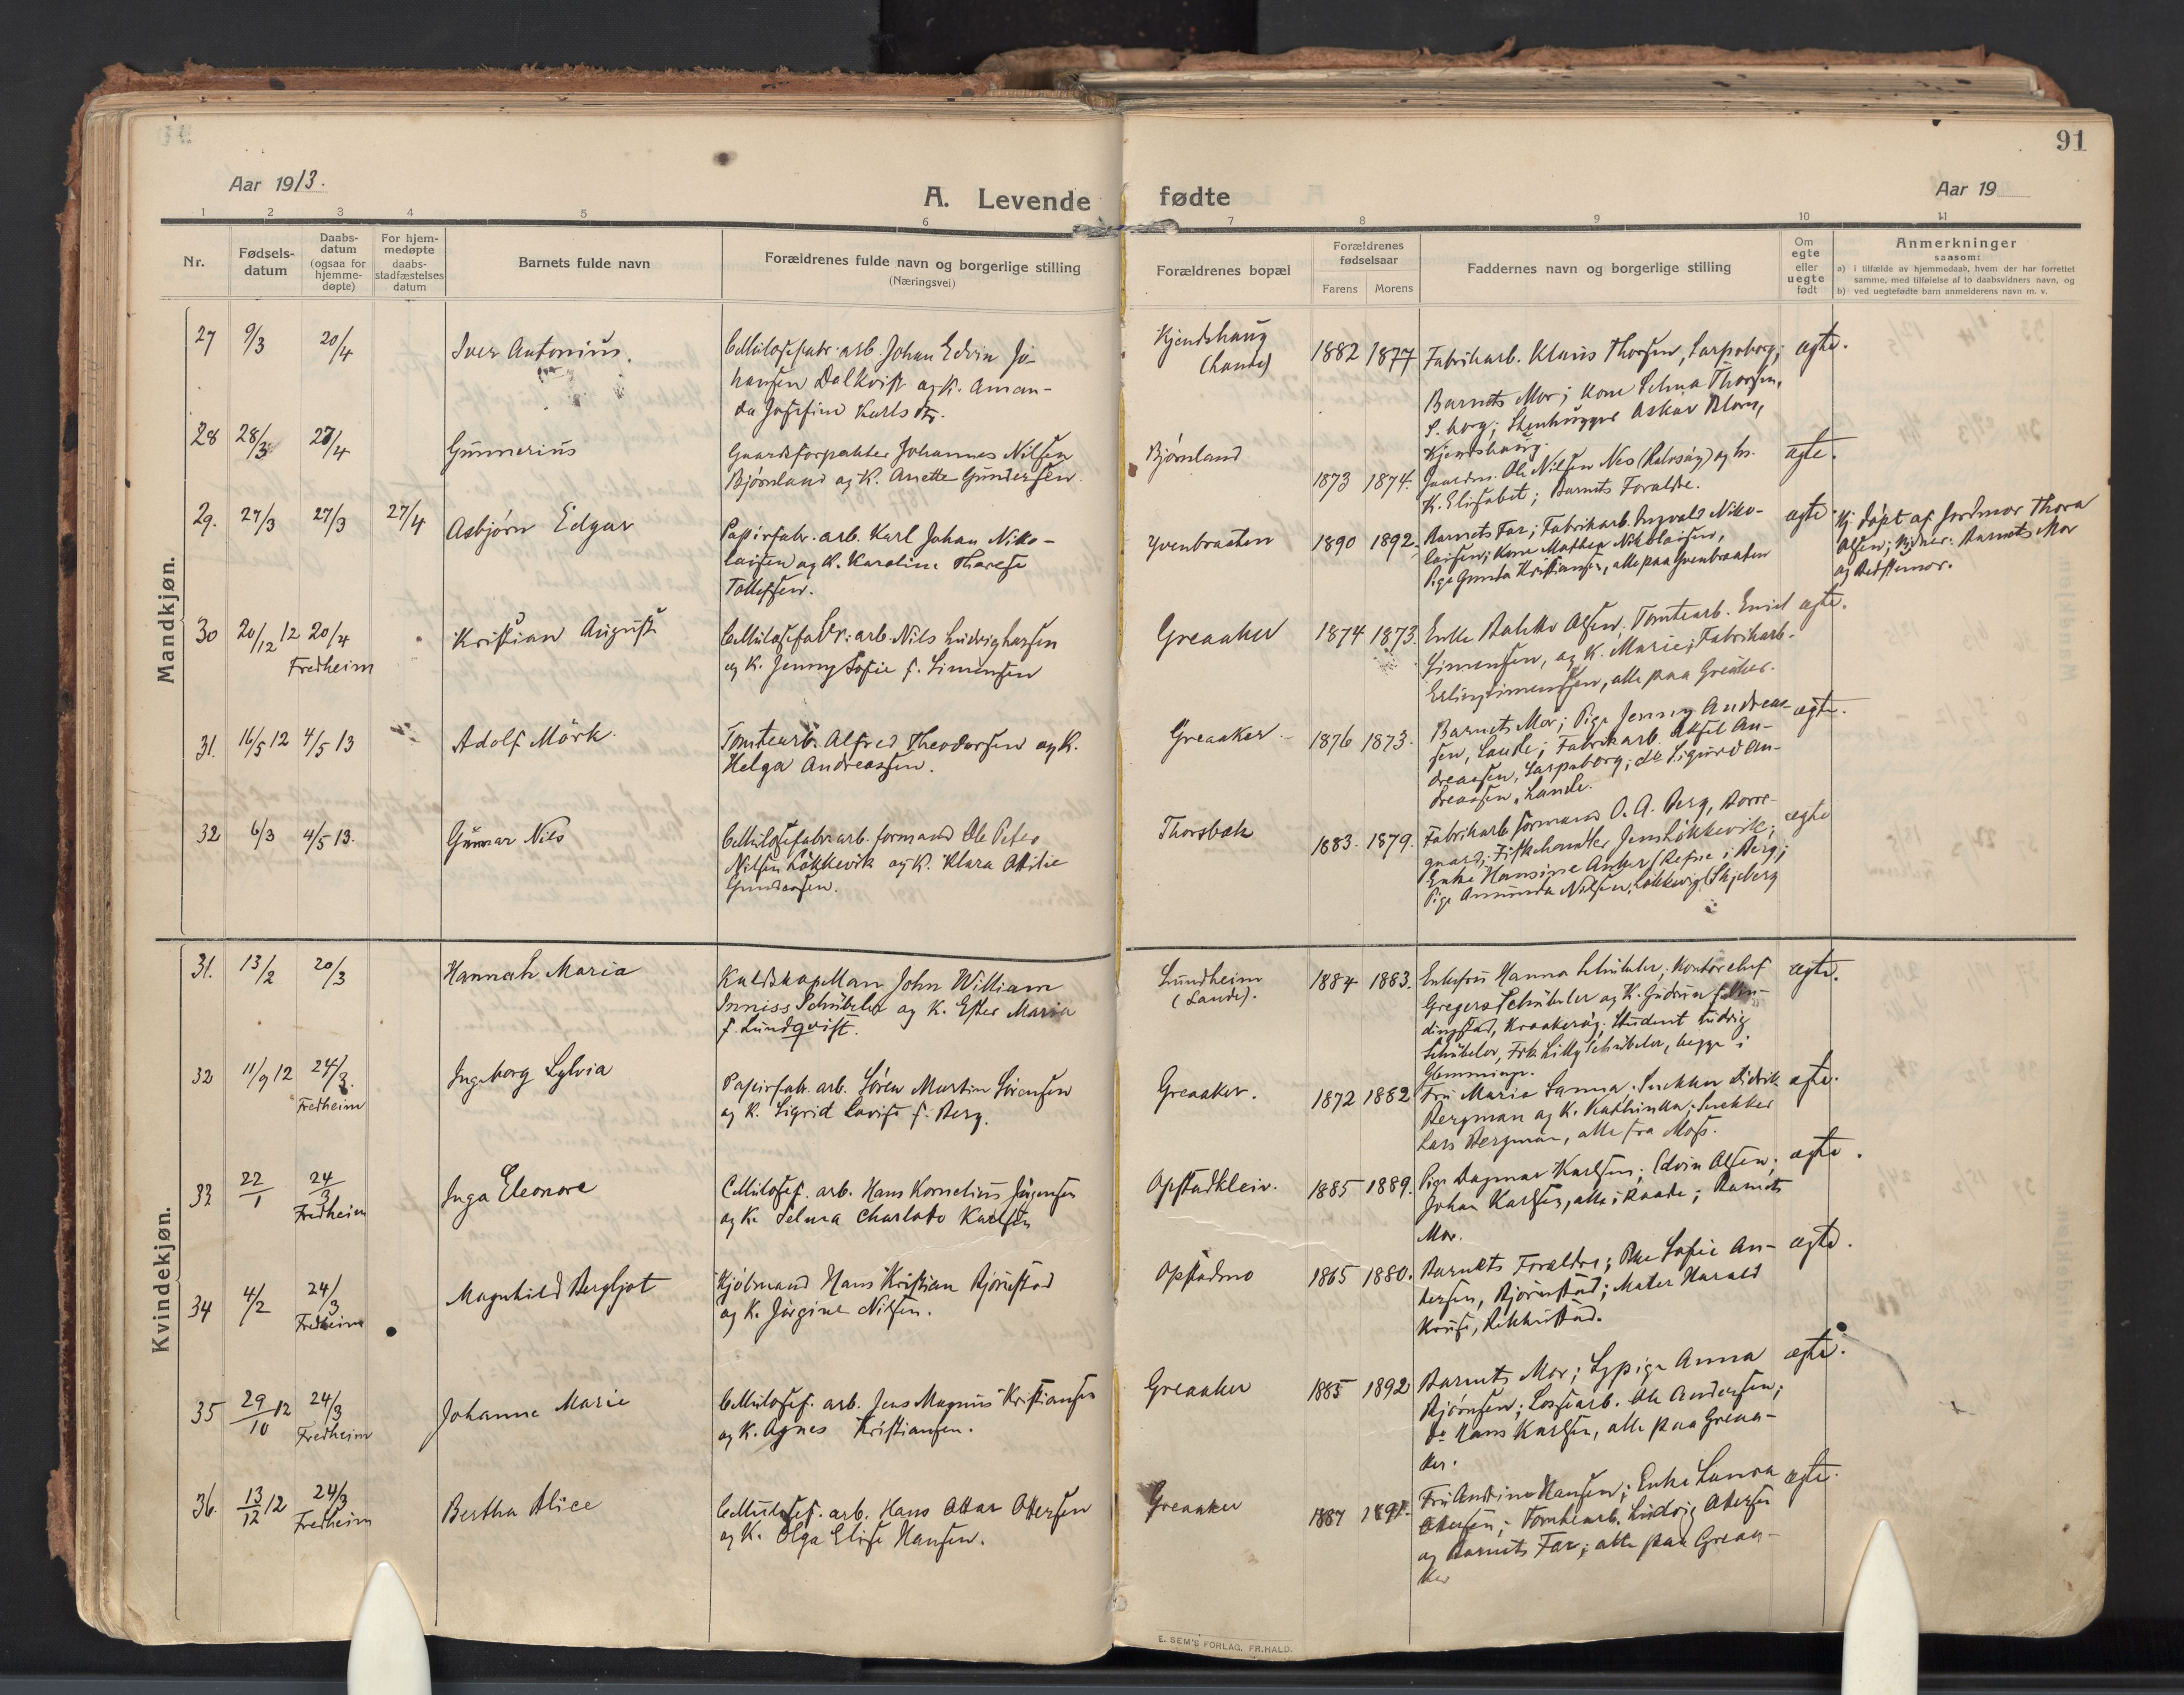 91
Aar 1913.
A. Levende fødte
Aar 19
1 2 3 4 5 6 7 8 9 10 11
Nr.
Fødsels-
datum
Daabs-
datum
(ogsaa for
hjemme-
døpte)
For hjem-
medøpte
daabs-
stadfæstelses
datum
Barnets fulde navn
Forældrenes fulde navn og borgerlige stilling
(Næringsvei)
Forældrenes bopæl
Forældrenes
fødselsaar
Farens Morens
Faddernes navn og borgerlige stilling
Om
egte
eller
uegte
født
Anmerkninger
saasom:
a) i tilfælde av hjemmedaab, hvem der har forrettet
samme, med tilføielse af to daabsvidners navn, og
b) ved uegtefødte barn anmelderens navn m. v.
Mandkjøn.
27 9/3 20/4
Iver Antonius.
Cellulosefabr. arb. Johan Edvin Jo-
hansen Dalkvist og K. Aman-
da Josefine Karlsdtr.
Kjendshaug
(Lande)
1882 1877
Fabrikarb. Klaus Thorsen, Sarpsborg;
Barnets Mor; Kone Selma Thorsen,
S.borg; Stenhugger Askar Blom,
Kjendshaug.
ægte.
28 28/3 27/4
Gunnerius
Gaardsforpakter Johannes Nilsen
Bjørnland og K. Anette Gundersen.
Bjørnland
1873 1874.
Gaardm. Ole Nilsen Nes (Rolvsøy) og hs.
K. Elisabet; Barnets Foraldre.
ægte.
29. 27/3 27/3 27/4
Asbjørn Edgar
Papirfabr. arb. Karl Johan Niko-
laisen og K. Karoline Therese
Tollefsen.
Yvenbraaten
1890 1892.
Barnets Far; Fabrikarb. Ingvald Niko-
laisen; Kone Mathea Nikolaisen,
Pige Gunda Kristiansen, alle paa Yvenbraaten
ægte
Hj. døpt af Jordmor Thora
Olsen; Vidner: Barnets Mor
og Bedstemor.
30 20/12 12 20/4
Fredheim
Kristian August
Cellulosefabr. arb. Nils Ludvig Larsen
og K. Jenny Sofie f. Simensen
Greaaker
1874 1873.
Enke Bolette Olsen, Tomtearb. Emil
Simensen, og K. Marie; Fabrikarb.
Erling Simensen, alle paa Greaker.
ægte.
31. 16/5 12 4/5 13
Adolf Mörk
Tomtearb. Alfred Theodorsen og K.
Helga Andreassen.
Greaaker.
1876 1873.
Barnets Mor; Pige Jenny Andreas-
sen, Lande; Fabrikarb. Aksel An-
dreassen, Sarpsborg; do Sigurd An-
dreassen, Lande.
ægte.
32 6/3 4/5 13.
Gunnar Nils
Cellulosefabrarb. formand Ole Peter
Nilsen Løkkevik og K. Klara Otilie
Gundersen.
Thorsbæk
1883. 1879.
Fabrikarb. formand O. A. Berg, Borre-
gaard; Fiskehandler Jens Løkkevik;
Enke Hansine Anker (Refne i Berg;
Pige Amunda Nilsen, Løkkevig (Skjeberg
ægte
Kvindekjøn.
31. 13/2 20/3
Hannah Maria
Kaldskapellan John William
Inniss Schübeler og K. Ester Maria
f. Lundqvist.
Lundheim
(Lande).
1884 1883.
Enkefru Hanna Schübeler; Kontorchef
Gregers Schübeler og K. Gudrun
dingstad, Kraakerøy; Student Ludvig
Schübeler, Frk. Lilly Schübeler, begge i
Glemminge.
ægte.
32 11/9 12 24/3.
Fredheim
Ingeborg Sylvia
Papirfab. arb. Sören Martin Sörensen
og K. Sigrid Lovise f. Berg.
Greaaker.
1872 1882
Fru Marie Sanna. Snekker Didrik
Bergman og K. Kathinka; Snekker
Lars Bergman, alle fra Moss.
ægte.
33 22/1 24/3
Fredheim
Inga Eleonore
Cellulosef. arb. Hans Kornelius Jörgensen
og K. Selma Charlote Karlsen
Opstadkleiv.
1885 1889.
Pige Dagmar Karlsen; Edvin Olsen;
Johan Karlsen, alle i Raade; Barnets
Mor.
ægte.
34 4/2 24/3
Fredheim
Magnhild Bergljot
Kjölmand Hans Kristian Bjørnstad
og K. Jørgine Nilsen.
Opstadmo
1865 1880.
Barnets Foraldre; Pike Sofie An-
dersen, Bjørnstad; Maler Harald
Kruse, Rekkustad.
ægte.
35 29/10 12 24/3
Fredheim
Johanne Marie
Cellulosef. arb. Jens Magnus Kristiansen
og K. Agnes Kristiansen.
Greaaker
1885 1892
Barnets Mor; Sypige Anna
Bjørnsen; Lossearb. Ole Andersen;
do Hans Karlsen, alle paa Greaa-
ker.
ægte.
36. 13/12 12 24/3
Fredheim
Bertha Alice
Cellulosef. arb. Hans Ottar Ottersen
og K. Olga Elise Hansen.
Greaaker
1887 1891.
Fru Andrine Hansen; Enke Laura
Ottersen; Tomtearb. Ludvig Ottersen
og Barnets Far; alle paa Greaa-
ker
ægte.
E. SEM'S FORLAG, FR.HALD.